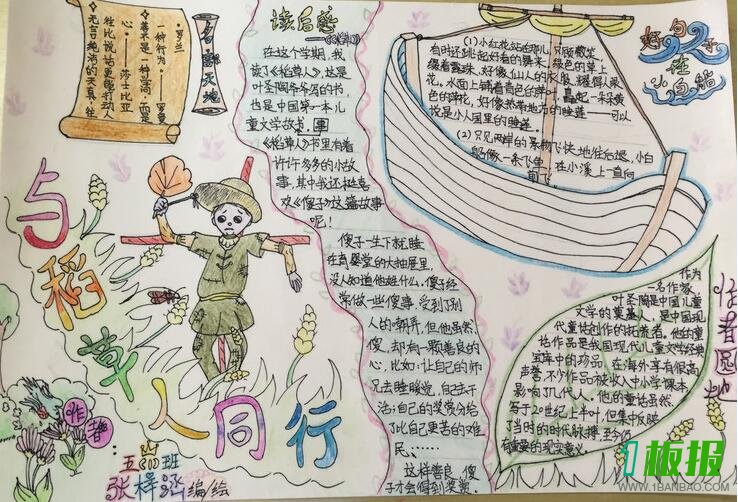 名言天地
·罗兰
一种行为。——罗曼
善不是一种学问,而是
心。——莎士比亚
往比说话更能打动人
·无言纯洁的天真,往
与稻草人同行
作者:
五四班
张梓涵编绘
读后感
——《稻草人》
在这个学期,我
读了《稻草人》,这是
叶圣陶爷爷写的书,
也是中国第一本儿
童文学故书。
《稻草人》书里有着
许许多多的小故
事,其中我还挺喜
欢《傻子》这篇故事
呢!
傻子一生下就睡
在育婴堂的大抽屉里,
没人知道他姓什么,傻子经
常做一些傻事,受到了别
人的嘲弄,但他虽然
傻,却有一颗善良的
心,比如:让自己的师
兄去睡觉,自己去干
活;自己的奖赏分给
了比自己更苦的难
民、……
这样善良,傻
子才会得到奖赏。
好句子在小白船
(1)小红花站在那儿,只顾微笑,
有时还跳起好看的舞来。绿色的草上
缀着露珠,好像仙人的衣服,耀得人眼
花。水面上铺着青色的萍叶,矗起一朵朵黄
色的萍花,好像热带地方的睡莲——可以
说是小人国里的睡莲。
(2)只见两岸的景物飞快地往后退,小白
船像一条飞鱼,在小溪上一直向
前飞。
作者圆地
作为
一名作家,
叶圣陶是中国儿童
文学的奠基人,是中国现
代童话创作的拓荒者。他的童
话作品是我国现代儿童文学经典
宝库中的珍品,在海外享有很高
声誉,不少作品被收入中小学课本,
影响了几代人。他的童话虽然
写于20世纪上半叶,但集中反映
了当时的时代脉搏,至今仍
有重要的现实意义。
1板报
WWW.1BANBAO.COM